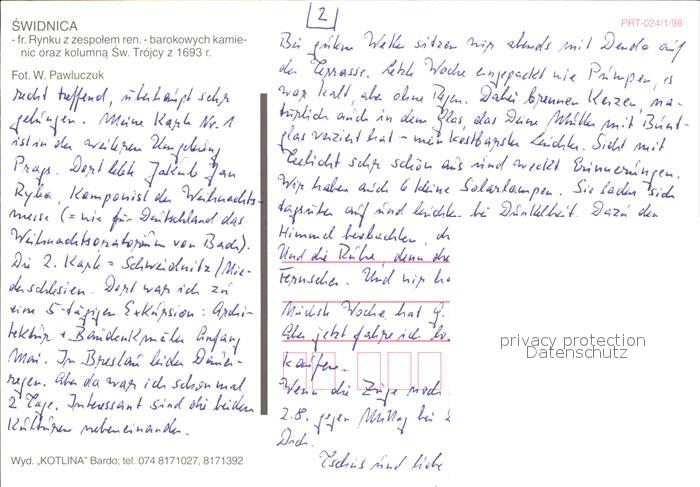 ŚWIDNICA
- fr. Rynku z zespołem ren. - barokowych kamie-
nic oraz kolumną Św. Trójcy z 1693 r.
Fot. W. Pawluczuk
PRT-024/1/98
recht treffend, überhaupt sehr
gelungen. Meine Karte Nr. 1
ist in der weiteren Umgebung
Prags. Dort lebte Jakub Jan
Ryba, Komponist der Weihnachts-
messe (= wie für Deutschland das
Weihnachtsoratorium von Bach).
Die 2. Karte = Schweidnitz / Nie-
derschlesien. Dort war ich zu
eine 5-tägigen Exkursion: Archi-
tektur + Baudenkmäler Anfang
Mai. In Breslau leider Dauer-
regen. Aber da war ich schon mal
2 Tage. Interessant sind die beiden
Kulturen nebeneinander.
Wyd. „KOTLINA" Bardo; tel. 074 8171027, 8171392
2
Bei gutem Wetter sitzen wir abends mit auf
der Terrasse. Letzte Woche eingepackt wie Mumien, es
war kalt, aber ohne Regen. Dabei brennen Kerzen, na-
türlich auch in dem Glas, das Deine Mutter mit Bunt-
glas verziert hat - mein kostbarster Leuchter. Sieht mit
Teelicht sehr schön aus und weckt Erinnerungen.
Wir haben auch 6 kleine Solarlampen. Sie laden sich
tagsüber auf und leuchten bei Dunkelheit. Dazu den
Himmel beobachten,
Und die Ruhe, denn die
Fernsehen. Und wir
Nächste Woche hat
Aber jetzt fahre ich
kaufen.
Wenn die Züge noch
2.8. gegen Mittag bei
Dich.
Tschüs und liebe
privacy protection
Datenschutz